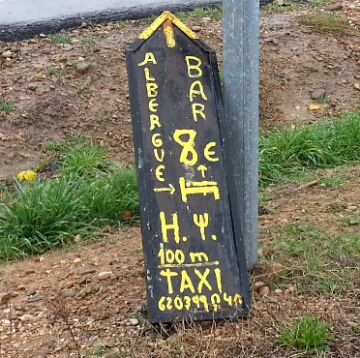 ALBERGUE
BAR
8€
H. Y.
100 m
TAXI